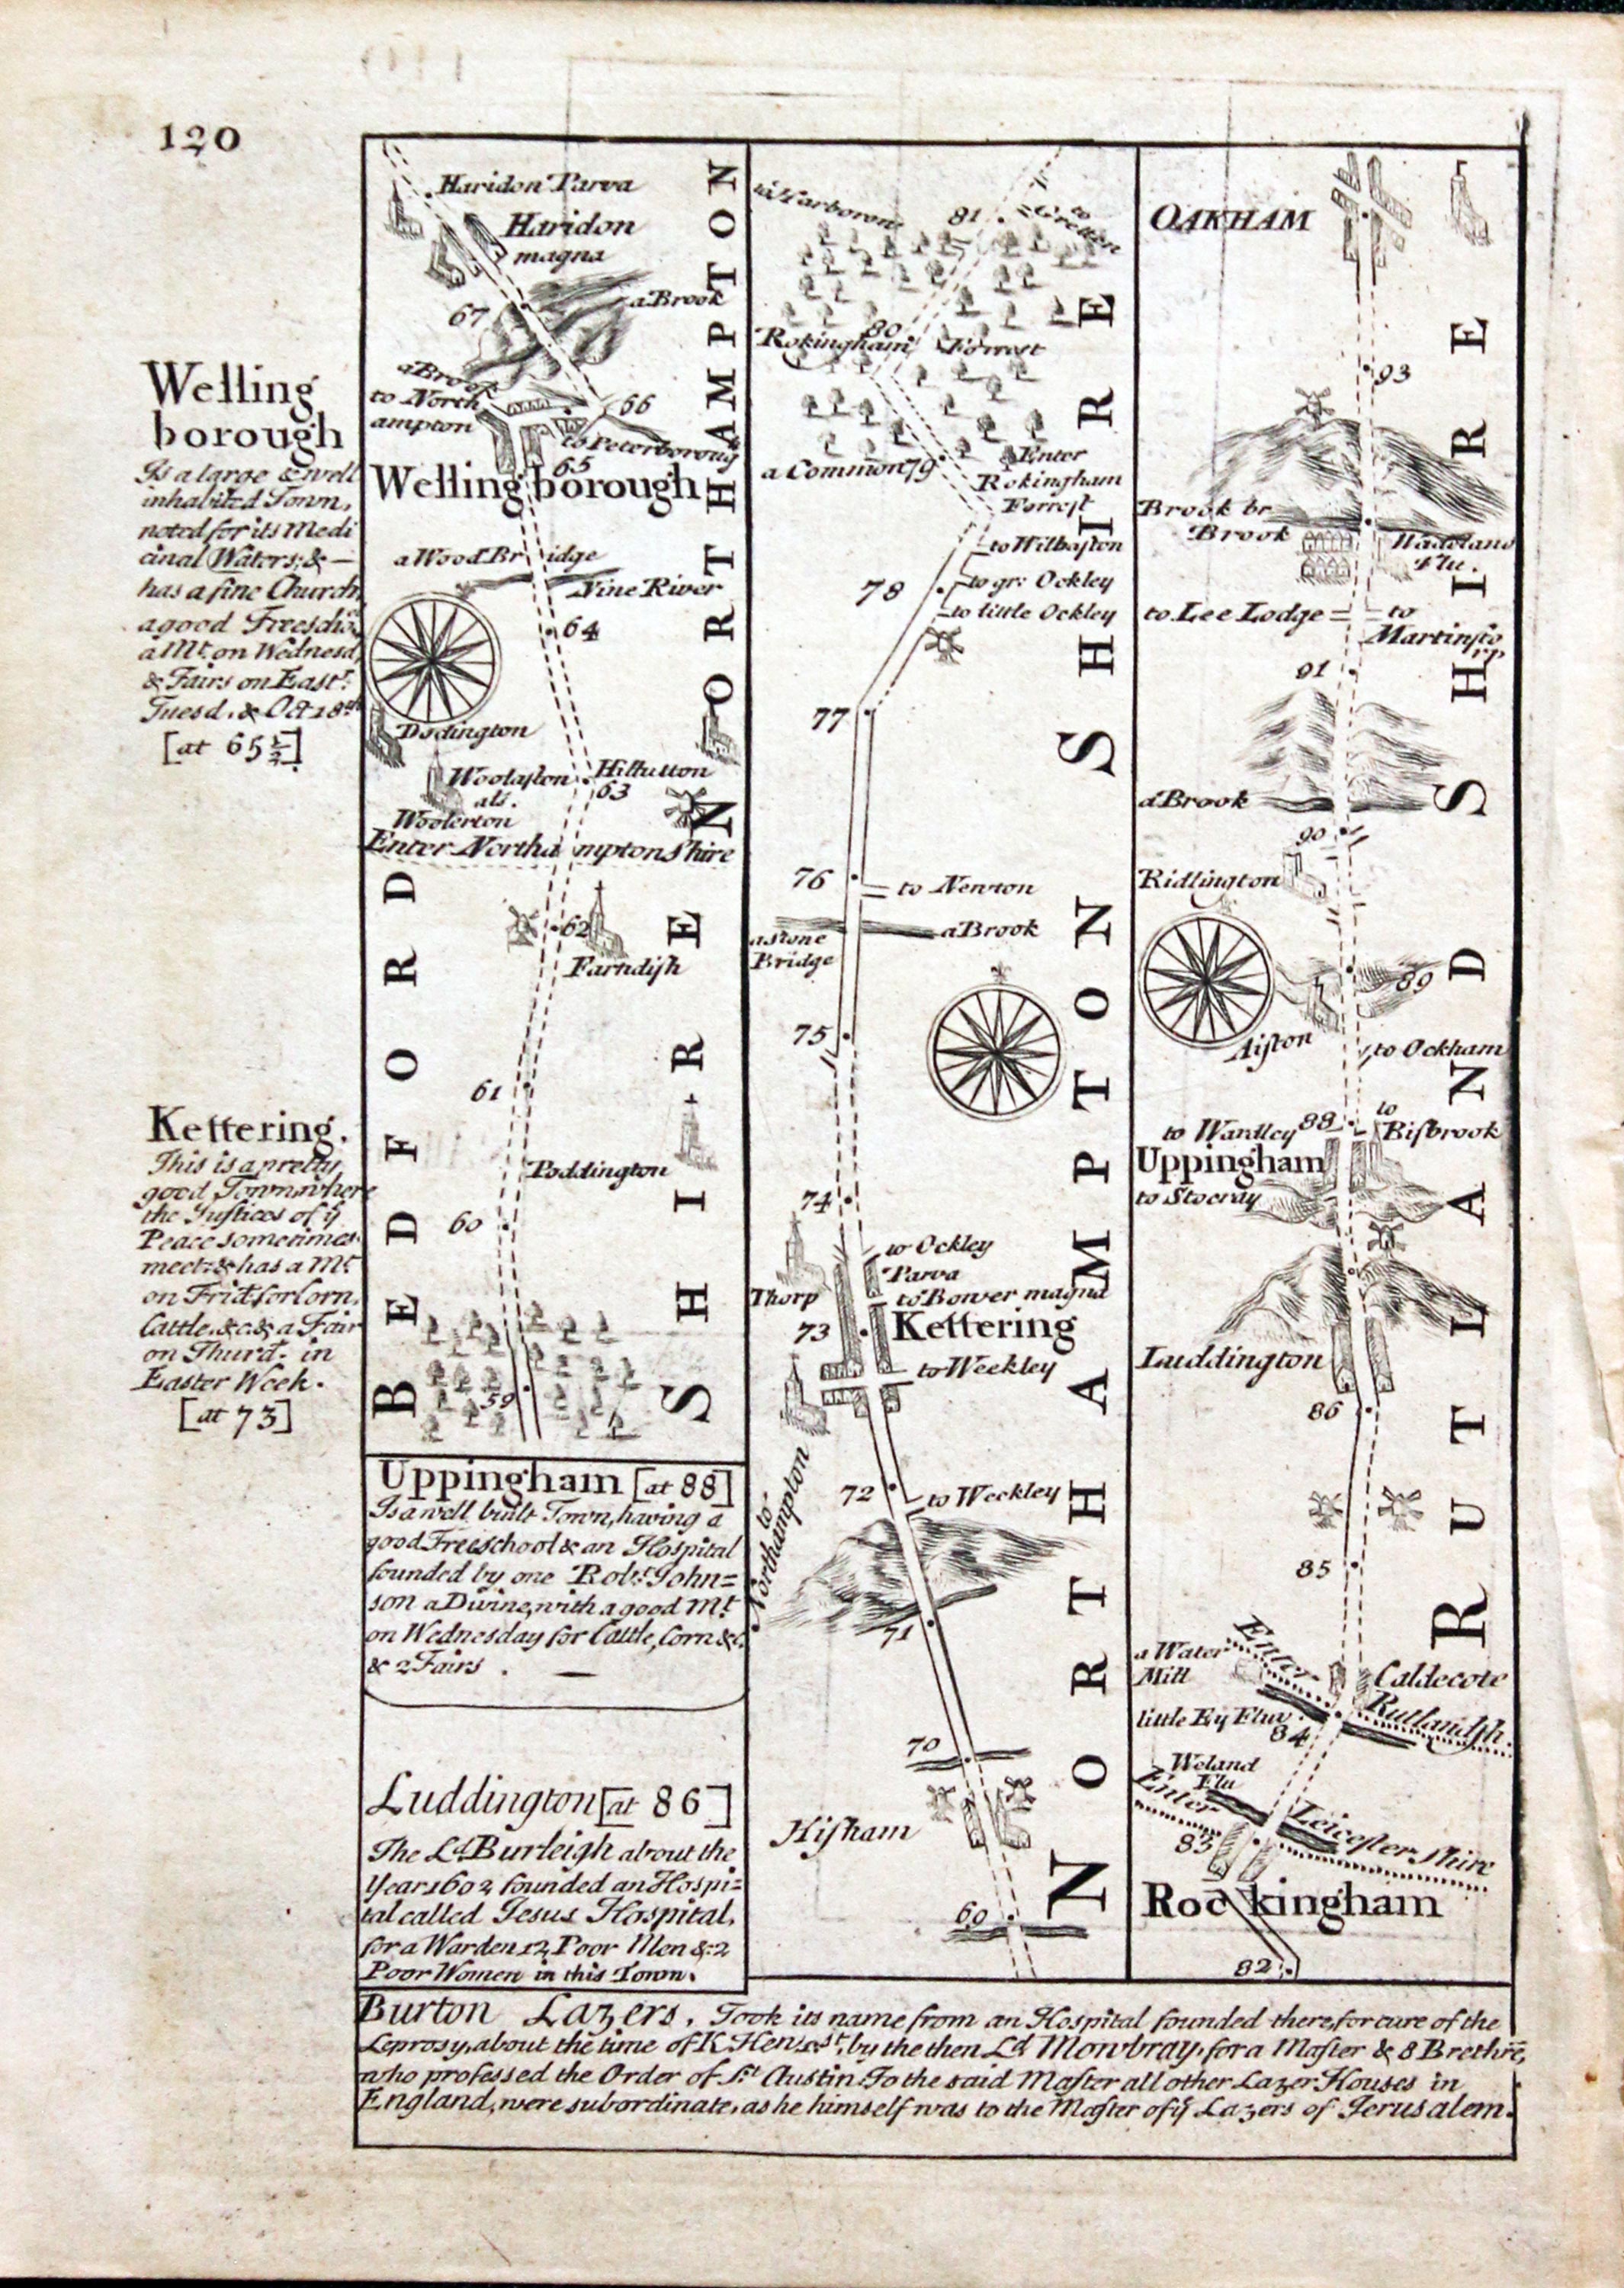 120
Welling
borough
Is a large & well
inhabited Town,
noted for its Medi
cinal Waters; & —
has a fine Church,
a good Freescho
a Mt. on Wednesd,
& Fairs on East.
Tuesd. & Oct 18th
[at 65½]
Kettering.
This is a pretty
good Town, where
the Justices of ẏ
Peace sometimes
meet: & has a Mt
on Frid: for Corn,
Cattle, &c. & a Fair
on Thurd. in
Easter Week.
[at 73]
Haridon Parva
Haridon
magna
67
a Brook
a Brook
to North
ampton
66
to Peterboroug
65
Wellingborough
a Wood Bridge
Nine River
64
Dodington
Woolaston
als.
Woolerton
Hiltutton
63
Enter Northamptonshire
62
Farndish
61
Poddington
60
59
BEDFORD
SHIRE
NORTHAMPTON
Uppingham [at 88]
Is a well built Town, having a
good Freeschool & an Hospital
founded by one Robt. John=
son a Divine, with a good Mt.
on Wednesday for Cattle, Corn &c.
& 2 Fairs . —
Luddington [at 86]
The Ld. Burleigh about the
Year 1602 founded an Hospi=
tal called Jesus Hospital,
for a Warden 12 Poor Men & 2
Poor Women in this Town.
to Harborow
81
to
Gretton
80
Rokingham Forrest
a Common
79
Enter
Rokingham
Forrest
to Wilbaston
78
to gr: Ockley
to little Ockley
77
76
to Newton
a stone
Bridge
a Brook
75
74
to Ockley
Parva
Thorp
to Bower magna
73
Kettering
to Weekley
72
to Weekley
to
Northampton
71
70
Hisham
69
NORTHAMPTON SHIRE
OAKHAM
93
Brook br
Brook
Flu.
to Lee Lodge
to
Martinsto
rp
91
a Brook
90
Ridlington
89
Aiston
to Ockham
to Wardley
88
to
Bisbrook
Uppingham
to Stocray
Luddington
86
85
a Water
Mill
Enter
Caldecote
Rutlandsh.
little Ey Fluv.
84
Weland
Flu
Enter
Leicester shire
83
Rockingham
82
RUTLAND SHIRE
Burton Lazers. Took its name from an Hospital founded there, for cure of the
Leprosy, about the time of K. Hen 1st, by the then Ld Mowbray, for a Master & 8 Brethrē,
who professed the Order of St Austin. To the said Master all other Lazer Houses in
England, were subordinate, as he himself was to the Master of ẏ Lazers of Jerusalem.